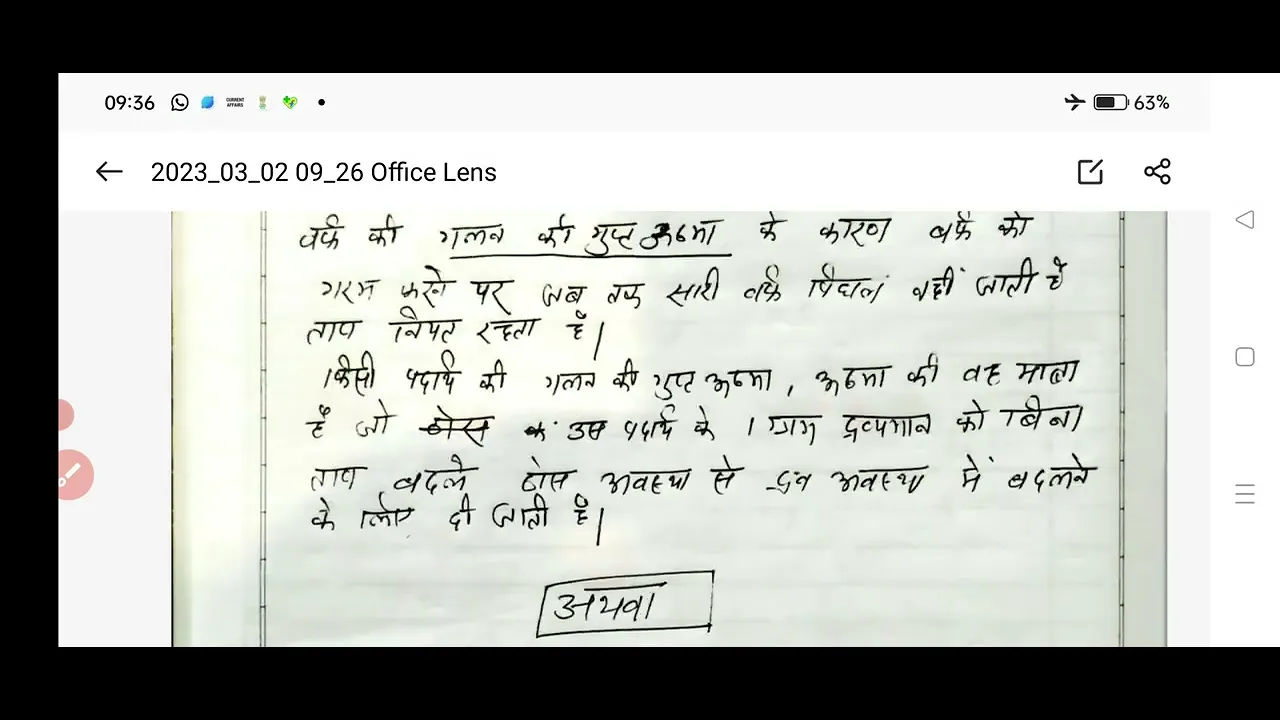 09:36 CURRENT AFFAIRS 63%
2023_03_02 09_26 Office Lens
बर्फ की गलन की गुप्त ऊष्मा के कारण बर्फ को
गरम करने पर जब तक सारी बर्फ पिघल नहीं जाती है
ताप नियत रहता है।
किसी पदार्थ की गलन की गुप्त ऊष्मा, ऊष्मा की वह मात्रा
है जो ठोस के उस पदार्थ के 1 ग्राम द्रव्यमान को बिना
ताप बदले ठोस अवस्था से द्रव अवस्था में बदलने
के लिए दी जाती है।
अथवा